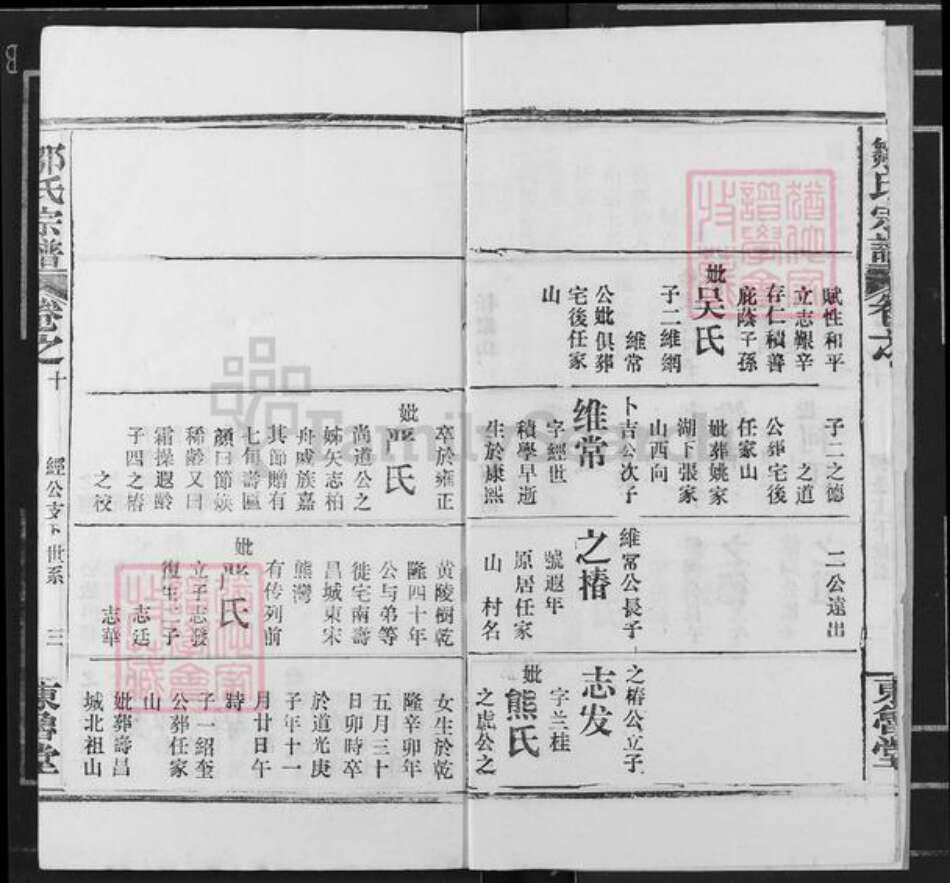 鄒氏宗譜
卷之
東魯堂
賦性和平
立志艱辛
存仁積善
庇蔭子孫
妣吳氏
子二維綱
維常
公妣俱葬
宅後任家
山
子二之德
之道
公葬宅後
任家山
妣葬姚家
湖下張家
山西向
卜吉公次子
维常
字經世
積學早逝
生於康熙
二公遠出
維常公長子
之椿
號遐年
原居任家
山 村名
之椿公立子
志发
字兰桂
妣熊氏
之虎公之
卒於雍正
妣 氏
尚道公之
姊矢志柏
舟戚族嘉
其節贈有
七旬壽匾
顏曰節媖
稀齡又曰
霜操遐齡
子四之椿
之校
黄陵樹乾
隆四十年
公与弟等
徙宅南壽
昌城東宋
熊灣
有传列前
妣 氏
立子志發
復生二子
志廷
志華
女生於乾
隆辛卯年
五月三十
日卯時卒
於道光庚
子年十一
月廿日午
時
子一紹奎
公葬任家
山
妣葬壽昌
城北祖山
鄒氏宗譜
卷之十
經公支下世系
三
東魯堂
FamilySearch